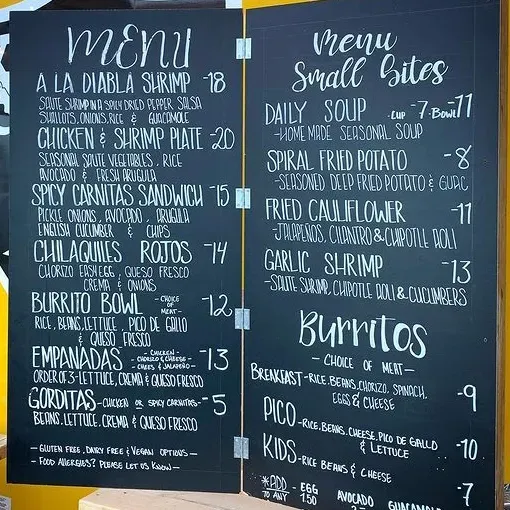 MENU
A LA DIABLA SHRIMP -18
SAUTE SHRIMP IN A SPICY DRIED PEPPER SALSA
SHALLOTS, ONIONS, RICE & GUACAMOLE
CHICKEN & SHRIMP PLATE -20
SEASONAL SAUTE VEGETABLES, RICE
AVOCADO & FRESH ARUGULA
SPICY CARNITAS SANDWICH -15
PICKLE ONIONS, AVOCADO, ARUGULA
ENGLISH CUCUMBER & CHIPS
CHILAQUILES ROJOS -14
CHORIZO EASY EGG, QUESO FRESCO
CREMA & ONIONS
BURRITO BOWL -CHOICE OF MEAT- -12
RICE, BEANS, LETTUCE, PICO DE GALLO
& QUESO FRESCO
EMPANADAS -CHICKEN- -CHORIZO & CHEESE- -CHEES & JALAPEÑO- -13
ORDER OF 3-LETTUCE, CREMA & QUESO FRESCO
GORDITAS -CHICKEN OR SPICY CARNITAS- -5
BEANS, LETTUCE, CREMA & QUESO FRESCO
- GLUTEN FREE, DAIRY FREE & VEGAN OPTIONS -
- FOOD ALLERGIES? PLEASE LET US KNOW -
Menu
Small Bites
DAILY SOUP -CUP -7 -BOWL -11
-HOME MADE SEASONAL SOUP
SPIRAL FRIED POTATO -8
-SEASONED DEEP FRIED POTATO & GUAC
FRIED CAULIFLOWER -11
-JALAPEÑOS, CILANTRO & CHIPOTLE AOLI
GARLIC SHRIMP -13
-SAUTE SHRIMP, CHIPOTLE AOLI & CUCUMBERS
Burritos
- CHOICE OF MEAT -
BREAKFAST -RICE, BEANS, CHORIZO, SPINACH,
EGGS & CHEESE -9
PICO -RICE, BEANS, CHEESE, PICO DE GALLO
& LETTUCE -10
KIDS -RICE BEANS & CHEESE
-7
*ADD - EGG AVOCADO GUACAMOLE
TO ANY 1.50